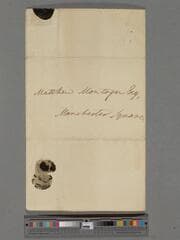 Matthew Montagu Esq.
Manchester Square